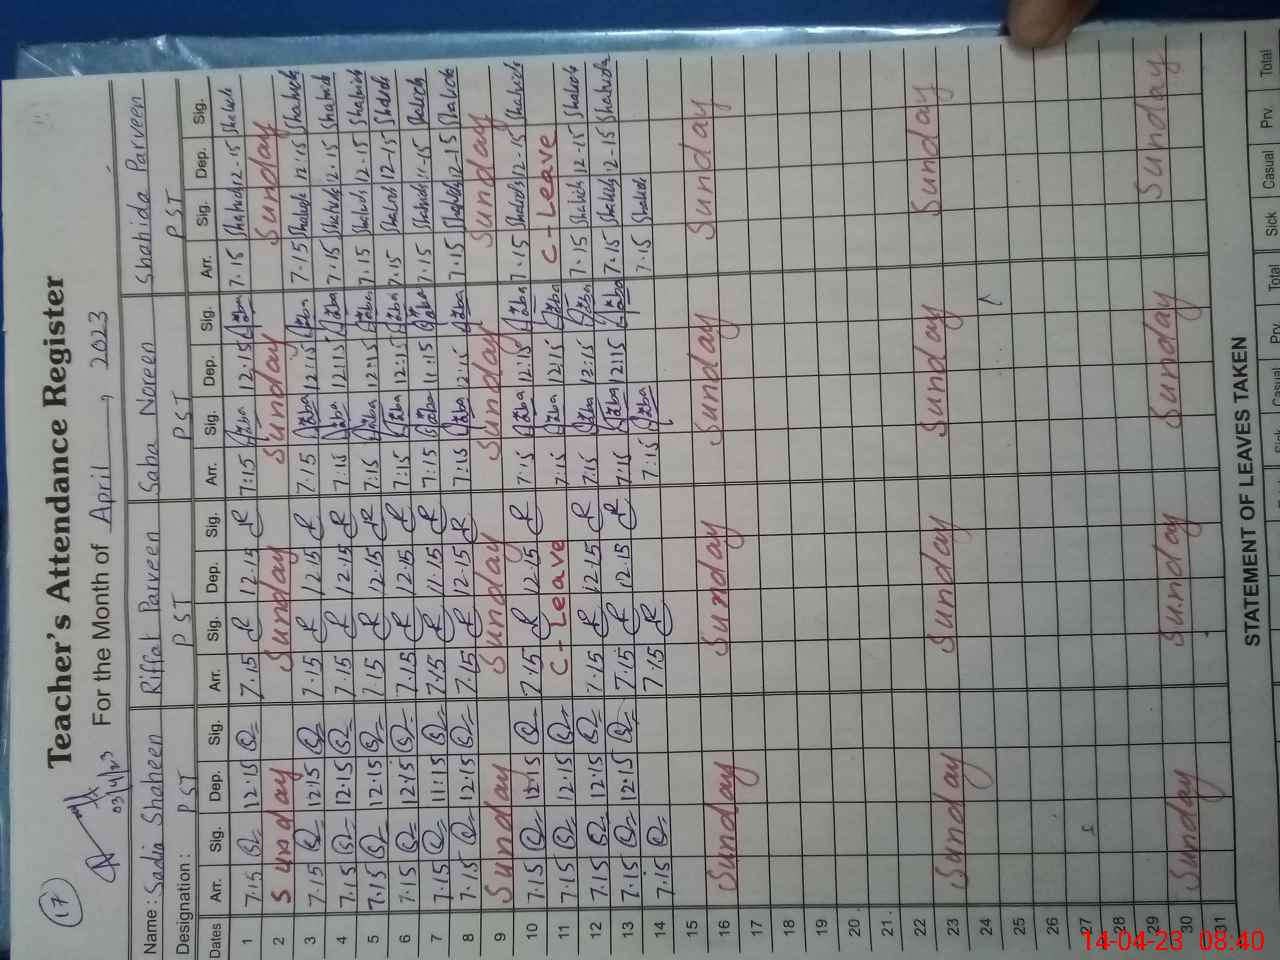 17
03/4/23
Teacher's Attendance Register
For the Month of April, 2023
Name: Sadia Shaheen Riffat Parveen Saba Noreen Shahida Parveen
Designation: PST PST PST PST
Dates Arr. Sig. Dep. Sig. Arr. Sig. Dep. Sig. Arr. Sig. Dep. Sig. Arr. Sig. Dep. Sig.
1 7.15 12.15 7.15 R 12.15 R 7:15 Saba 12:15 Saba 7.15 Shahida 12-15 Shahida
2 Sunday Sunday Sunday Sunday
3 7.15 12.15 7.15 R 12.15 R 7.15 Saba 12:15 Saba 7.15 Shahida 12.15 Shahida
4 7.15 12.15 7.15 R 12.15 R 7:15 Saba 12:15 Saba 7.15 Shahida 12.15 Shahida
5 7.15 12.15 7.15 R 12.15 R 7:15 Saba 12:15 Saba 7.15 Shahida 12.15 Shahida
6 7.15 12.15 7.15 R 12.15 R 7:15 Saba 12:15 Saba 7.15 Shahida 12-15 Shahida
7 7.15 11:15 7.15 R 11.15 R 7:15 Saba 11:15 Saba 7.15 Shahida 11-15 Shahida
8 7.15 12.15 7.15 R 12.15 R 7:15 Saba 12:15 Saba 7.15 Shahida 12-15 Shahida
9 Sunday Sunday Sunday Sunday
10 7.15 12.15 7.15 R 12.15 R 7:15 Saba 12:15 Saba 7.15 Shahida 12-15 Shahida
11 7.15 12.15 C-Leave 7:15 Saba 12:15 Saba C-Leave
12 7.15 12.15 7.15 R 12.15 R 7:15 Saba 12:15 Saba 7.15 Shahida 12-15 Shahida
13 7.15 12.15 7.15 R 12.15 R 7:15 Saba 12:15 Saba 7.15 Shahida 12-15 Shahida
14 7.15 7.15 R 7:15 Saba 7.15 Shahida
15
16 Sunday Sunday Sunday Sunday
17
18
19
20.
21.
22
23 Sunday Sunday Sunday Sunday
24
25
26
27
28
29
30 Sunday Sunday Sunday Sunday
31
STATEMENT OF LEAVES TAKEN
Sick Casual Prv. Total Sick Casual Prv. Total
14-04-23 08:40